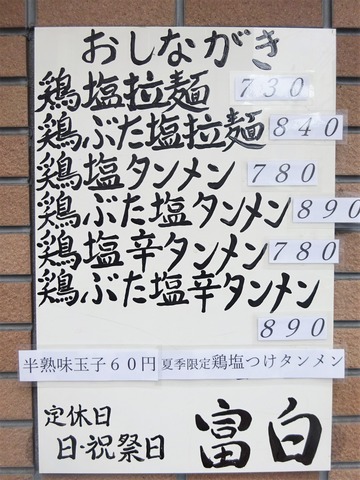 おしながき
鶏塩拉麺 730
鶏ぶた塩拉麺 840
鶏塩タンメン 780
鶏ぶた塩タンメン 890
鶏塩辛タンメン 780
鶏ぶた塩辛タンメン
890
半熟味玉子60円 夏季限定鶏塩つけタンメン
定休日
日・祝祭日
富白